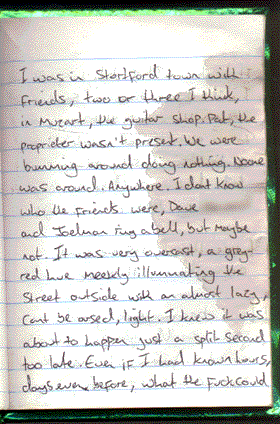 I was in Stortford town with
friends, two or three I think,
in Mozart, the guitar shop. Pat, the
proprieter wasn't present. We were
bumming around doing nothing. Noone
was around. Anywhere. I dont know
who the friends were, Dave
and Joelman ring a bell, but maybe
not. It was very overcast, a grey
red hue meekly illuminating the
street outside with an almost lazy,
cant be arsed, light. I knew it was
about to happen just a split second
too late. Even if I had known hours,
days even, before, what the fuck could